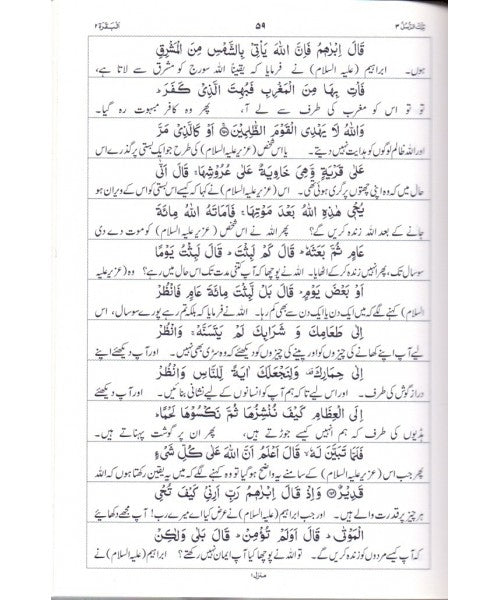 تِلْكَ الرُّسُلُ ۳ ۵۹ اَلْبَقَرَة ۲
قَالَ اِبْرٰهٖمُ فَاِنَّ اللّٰهَ يَاْتِىْ بِالشَّمْسِ مِنَ الْمَشْرِقِ
ہوں۔ ابراہیم (علیہ السلام) نے فرمایا کہ یقیناً اللہ سورج کو مشرق سے لاتا ہے،
فَاْتِ بِهَا مِنَ الْمَغْرِبِ فَبُهِتَ الَّذِىْ كَفَرَ ؕ
تو تو اس کو مغرب کی طرف سے لے آ، پھر وہ کافر مبہوت رہ گیا۔
وَاللّٰهُ لَا يَهْدِى الْقَوْمَ الظّٰلِمِيْنَ ۙ اَوْ كَالَّذِىْ مَرَّ
اور اللہ ظالم لوگوں کو ہدایت نہیں دیتے۔ یا اس شخص (عزیر علیہ السلام) کی طرح جو ایک بستی پر گذرے اس
عَلٰى قَرْيَةٍ وَّهِىَ خَاوِيَةٌ عَلٰى عُرُوْشِهَا ۚ قَالَ اَنّٰى
حال میں کہ وہ اپنی چھتوں پر گری ہوئی تھی۔ اس (عزیر علیہ السلام) نے کہا کہ کیسے اس بستی کو اس کے ویران ہو
يُحْىٖ هٰذِهِ اللّٰهُ بَعْدَ مَوْتِهَا ۚ فَاَمَاتَهُ اللّٰهُ مِائَةَ
جانے کے بعد اللہ زندہ کریں گے؟ پھر اللہ نے اس شخص (عزیر علیہ السلام) کو موت دے دی
عَامٍ ثُمَّ بَعَثَهٗ ؕ قَالَ كَمْ لَبِثْتَ ؕ قَالَ لَبِثْتُ يَوْمًا
سو سال تک، پھر انہیں زندہ کر کے اٹھایا۔ اللہ نے پوچھا کہ آپ کتنی مدت تک اس حال میں رہے؟ وہ (عزیر علیہ
اَوْ بَعْضَ يَوْمٍ ؕ قَالَ بَلْ لَّبِثْتَ مِائَةَ عَامٍ فَانْظُرْ
السلام) کہنے لگے کہ میں ایک دن یا ایک دن سے بھی کم رہا۔ اللہ نے فرمایا کہ بلکہ تم رہے پورے سو سال، اس
اِلٰى طَعَامِكَ وَ شَرَابِكَ لَمْ يَتَسَنَّهْ ۚ وَانْظُرْ
لیے آپ اپنے کھانے کی چیزوں کو اور پینے کی چیزوں کو دیکھئے کہ وہ سڑی بھی نہیں۔ اور آپ دیکھئے اپنے
اِلٰى حِمَارِكَ وَلِنَجْعَلَكَ اٰيَةً لِّلنَّاسِ وَانْظُرْ
دراز گوش کی طرف۔ اور اس لیے تاکہ ہم آپ کو انسانوں کے لیے نشانی بنائیں۔ اور آپ دیکھئے
اِلَى الْعِظَامِ كَيْفَ نُنْشِزُهَا ثُمَّ نَكْسُوْهَا لَحْمًا ؕ
ہڈیوں کی طرف کہ ہم انہیں کیسے جوڑتے ہیں، پھر ان پر گوشت پہناتے ہیں۔
فَلَمَّا تَبَيَّنَ لَهٗ ۙ قَالَ اَعْلَمُ اَنَّ اللّٰهَ عَلٰى كُلِّ شَىْءٍ
پھر جب اس (عزیر علیہ السلام) کے سامنے یہ واضح ہو گیا تو وہ کہنے لگے کہ میں یہ یقین رکھتا ہوں کہ اللہ
قَدِيْرٌ وَاِذْ قَالَ اِبْرٰهٖمُ رَبِّ اَرِنِىْ كَيْفَ تُحْىِ
ہر چیز پر قدرت والے ہیں۔ اور جب ابراہیم (علیہ السلام) نے عرض کیا اے میرے رب! آپ مجھے دکھائیے
الْمَوْتٰى ؕ قَالَ اَوَلَمْ تُؤْمِنْ ؕ قَالَ بَلٰى وَلٰكِنْ
کہ آپ کیسے مردوں کو زندہ کریں گے۔ تو اللہ نے پوچھا کیا آپ ایمان نہیں رکھتے؟ ابراہیم (علیہ السلام) نے
منزل ۱